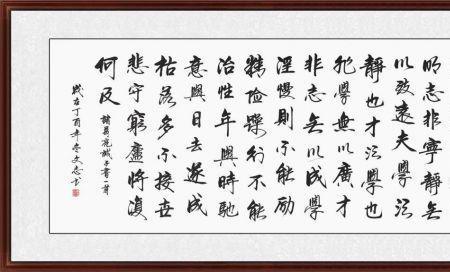 明志非寧靜無
以致遠夫學須
靜也才須學也
非學無以廣才
非志無以成學
淫慢則不能勵
精險躁則不能
治性年與時馳
意與日去遂成
枯落多不接世
悲守窮廬將復
何及
諸葛亮誡子書一首
歲在丁酉年冬文志書